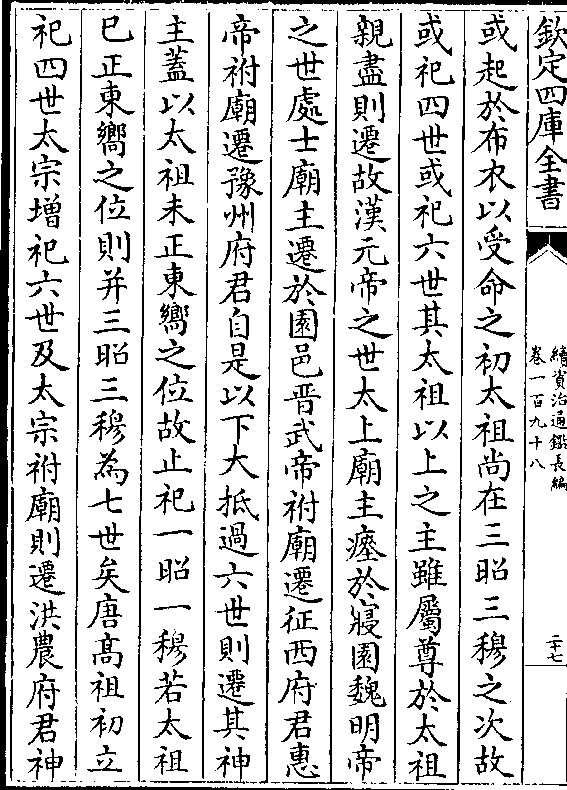 欽定四庫全書
續資治通鑑長編
卷一百九十八
二十七
或起於布衣以受命之初太祖尚在三昭三穆之次故
或祀四世或祀六世其太祖以上之主雖屬尊於太祖
親盡則遷故漢元帝之世太上廟主瘞於寢園魏明帝
之世處士廟主遷於園邑晋武帝祔廟遷征西府君惠
帝祔廟遷豫州府君自是以下大抵過六世則遷其神
主蓋以太祖未正東嚮之位故止祀一昭一穆若太祖
已正東嚮之位則并三昭三穆為七世矣唐髙祖初立
祀四世太宗增祀六世及太宗祔廟則遷洪農府君神